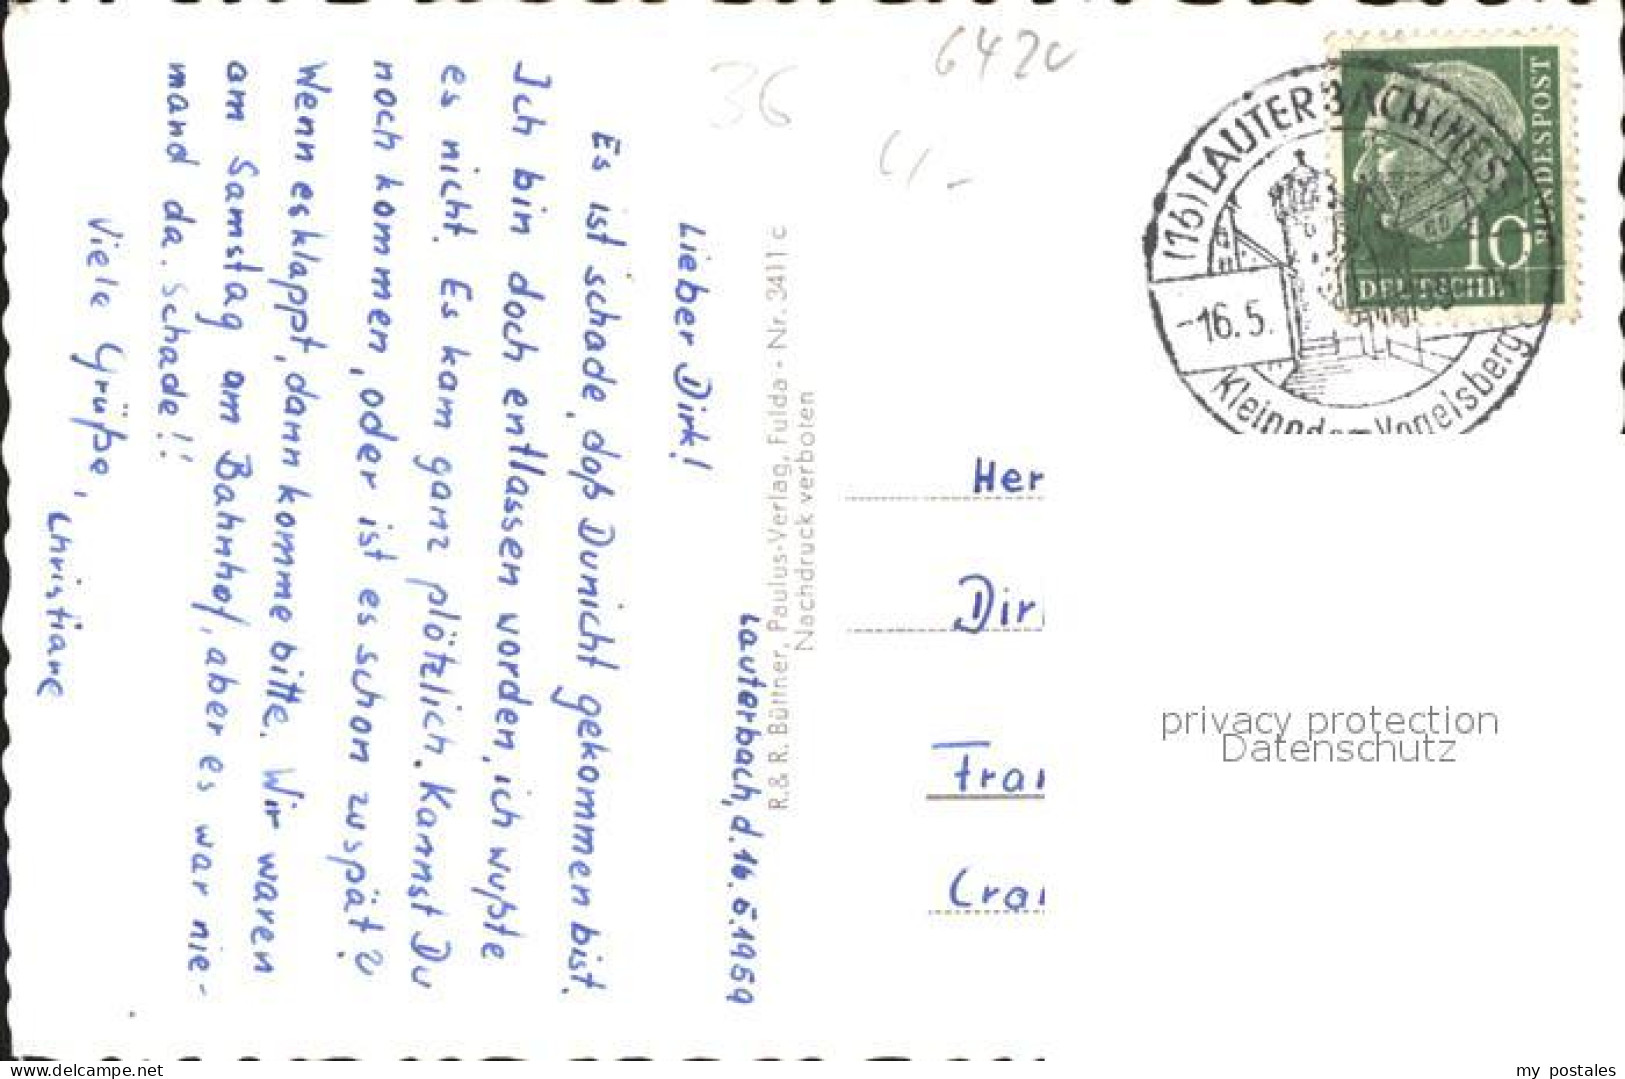 Lauterbach, d. 16.5.1959
Lieber Dirk!
Es ist schade, daß Du nicht gekommen bist.
Ich bin doch entlassen worden, ich wußte
es nicht. Es kam ganz plötzlich. Kannst Du
noch kommen, oder ist es schon zu spät?
Wenn es klappt, dann komme bitte. Wir waren
am Samstag am Bahnhof, aber es war nie-
mand da. Schade!!
Viele Grüße,
Christiane
R. & R. Büttner, Paulus-Verlag, Fulda - Nr. 3411 c
Nachdruck verboten
36
6420
(16) LAUTERBACH (HESS
-16.5.
DEUTSCHE
BUNDESPOST
10
Her
Dir
Fra
Cra
privacy protection
Datenschutz
www.delcampe.net
my_postales